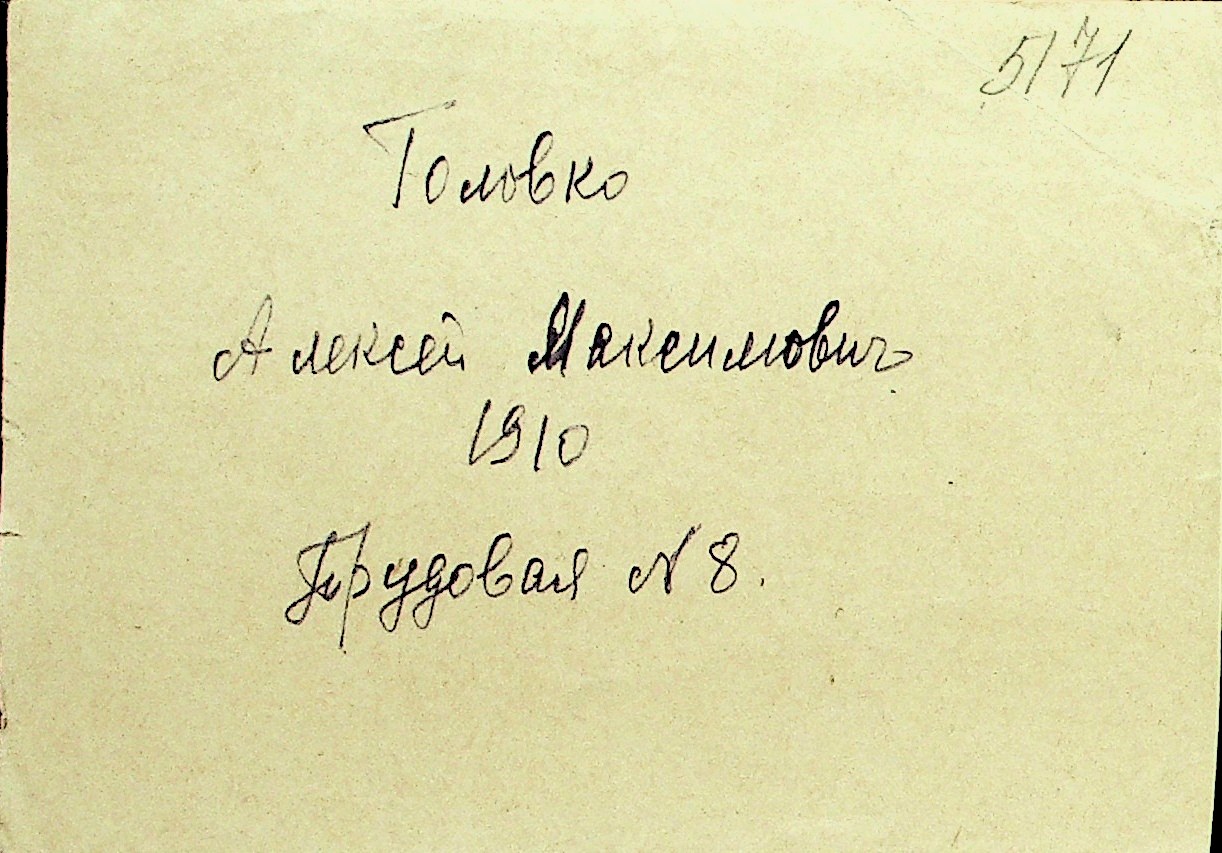 5171
Головко
Алексей Максимович
1910
Трудовая N 8.